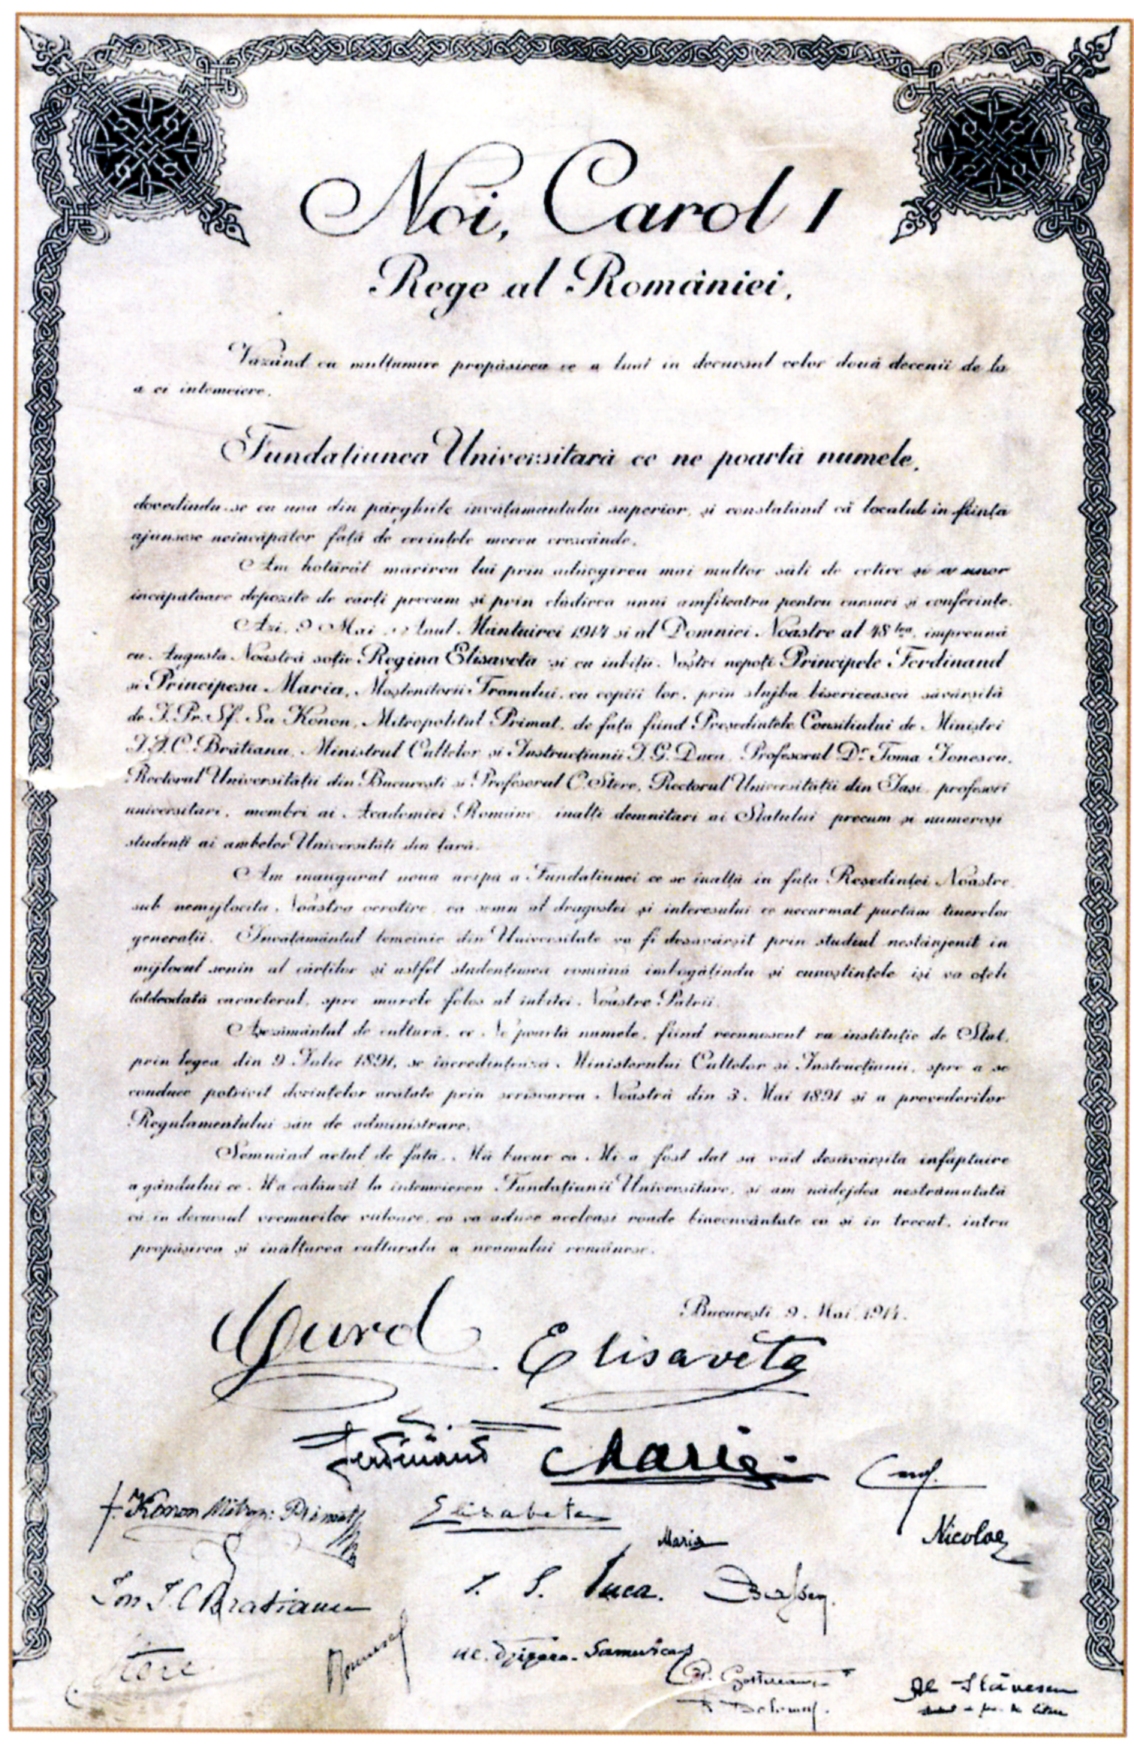 Noi, Carol I
Rege al României,
Văzând cu mulțumire propășirea ce a luat in decursul celor două decenii de la
a ei intemeiere,
Fundațiunea Universitară ce ne poartă numele,
dovedindu-se ca una din pârghiile invățământului superior, și constatând că localul in ființa
ajunsese neincăpător față de cerințele mereu crescânde,
Am hotărât marirea lui prin adaogirea mai multor săli de cetire și a unor
incăpatoare depozite de cărți precum și prin clădirea unui amfiteatru pentru cursuri și conferințe.
Azi, 9 Mai Anul Mântuirei 1914 si al Domniei Noastre al 48 lea, impreună
cu Augusta Noastră soție Regina Elisaveta și cu iubiții Noștri nepoți Principele Ferdinand
si Principesa Maria, Moștenitorii Tronului, cu copiii lor, prin slujba bisericească săvârșită
de I. Pr. Sf. Sa Konon, Mitropolitul Primat, de fața fiind Președintele Consiliului de Miniștri
I. I. C. Brătianu, Ministrul Cultelor si Instrucțiunii I. G. Duca, Profesorul Dr. Toma Ionescu,
Rectorul Universității din București si Profesorul C. Stere, Rectorul Universității din Iași, profesori
universitari, membri ai Academiei Române, inalți demnitari ai Statului precum si numeroși
studenți ai ambelor Universități din țară.
Am inaugurat noua aripa a Fundațiunei ce se inalță in fața Reședinței Noastre,
sub nemijlocita Noastra ocrotire, ca semn al dragostei și interesului ce necurmat purtăm tinerelor
generații. Invățământul temeinic din Universitate va fi desavârșit prin studiul nestânjenit in
mijlocul senin al cărților și astfel studențimea română imbogățindu și cunoștințele iși va oțeli
totdeodată caracterul, spre marele folos al iubitei Noastre Patrii.
Așezământul de cultură, ce Ne poartă numele, fiind recunoscut ca instituție de Stat,
prin legea din 9 Iulie 1891, se incredințează Ministerului Cultelor și Instrucțiunii, spre a se
conduce potrivit dorințelor aratate prin scrisoarea Noastră din 3 Mai 1891 și a prevederilor
Regulamentului său de administrare.
Semnând actul de față, Mă bucur ca Mi a fost dat sa văd desăvârșita infăptuire
a gândului ce M'a călăuzit la intemeierea Fundațiunii Universitare, și am nădejdea nestrămutată
că in decursul vremurilor viitoare, ea va aduce aceleași roade binecuvântate ca și in trecut, intru
propășirea și inălțarea culturala a neamului românesc.
București 9 Mai 1914.
Carol Elisaveta
Ferdinand Maria Carol
† Konon Mitrop: Primat Elisabeta Maria Nicolae
Ion I. C. Bratianu I. G. Duca.
Stere
Al Stănescu